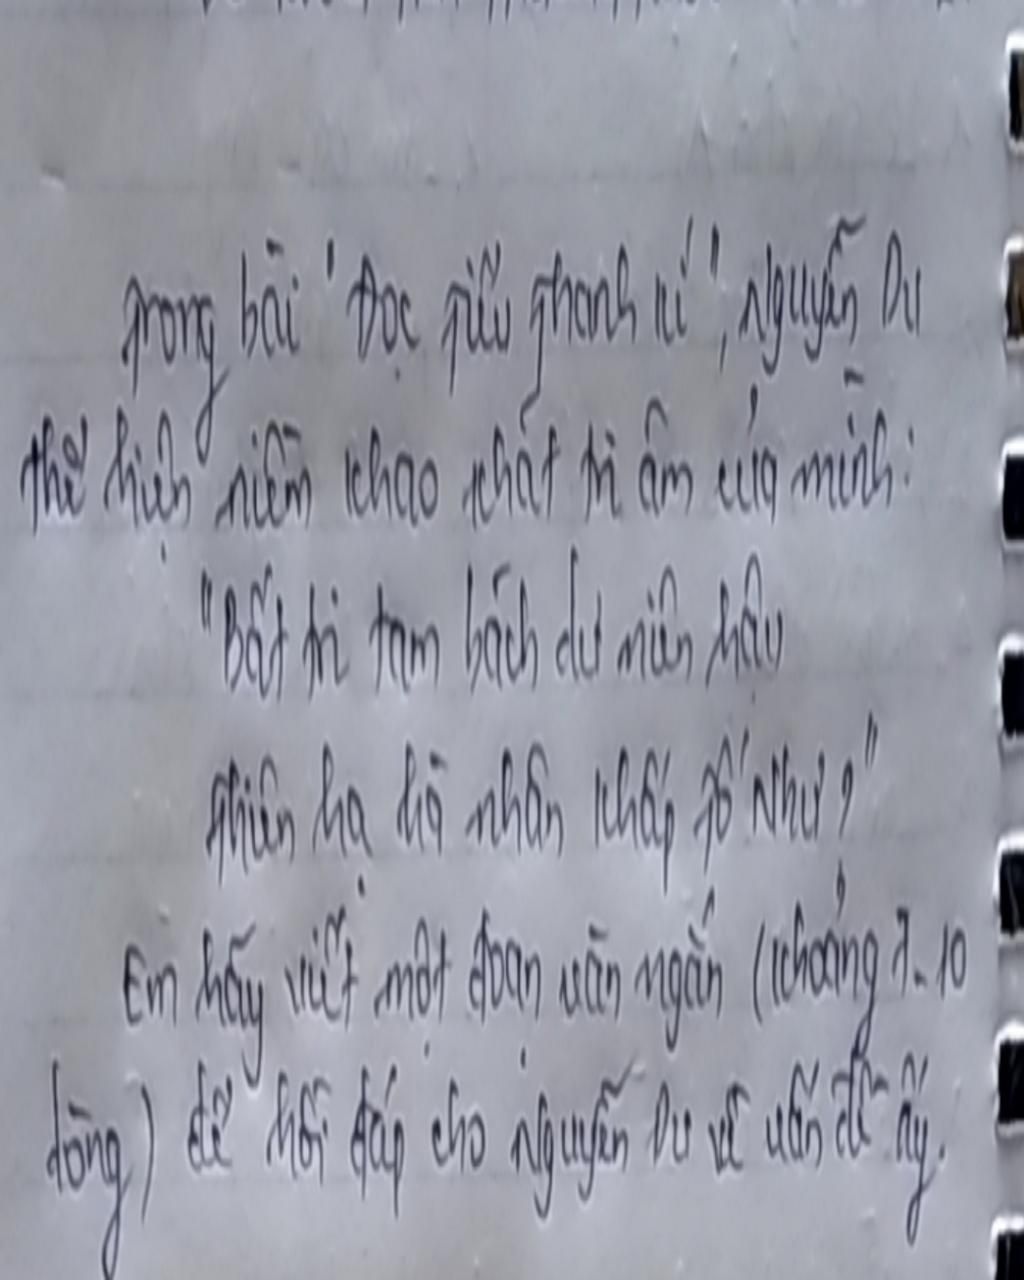 Trong bài "Đọc Tiểu Thanh kí", Nguyễn Du
thể hiện niềm khao khát tri âm của mình:
"Bất tri tam bách dư niên hậu
Thiên hạ hà nhân khấp Tố Như?"
Em hãy viết một đoạn văn ngắn (khoảng 7-10
dòng) để hồi đáp cho Nguyễn Du về vấn đề ấy.